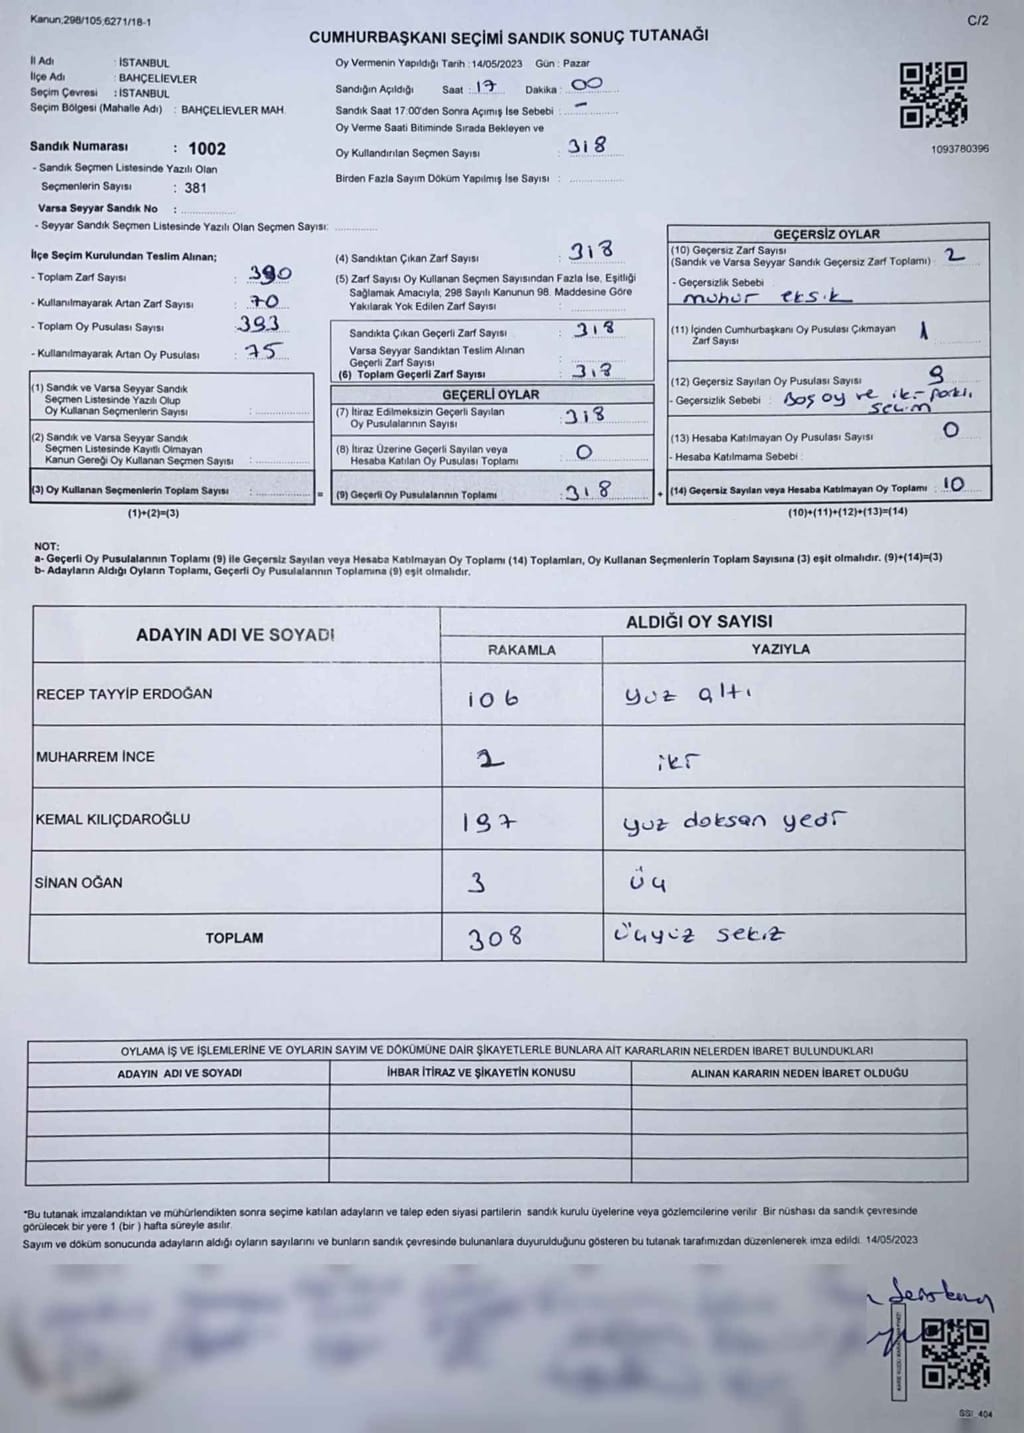 Kanun;298/105,6271/18-1
C/2
CUMHURBAŞKANI SEÇİMİ SANDIK SONUÇ TUTANAĞI
İl Adı : İSTANBUL
İlçe Adı : BAHÇELİEVLER
Seçim Çevresi : İSTANBUL
Seçim Bölgesi (Mahalle Adı) : BAHÇELİEVLER MAH.
Sandık Numarası : 1002
- Sandık Seçmen Listesinde Yazılı Olan
Seçmenlerin Sayısı : 381
Varsa Seyyar Sandık No :
- Seyyar Sandık Seçmen Listesinde Yazılı Olan Seçmen Sayısı:
Oy Vermenin Yapıldığı Tarih :14/05/2023 Gün : Pazar
Sandığın Açıldığı Saat : 17 Dakika : 00
Sandık Saat 17:00'den Sonra Açımış İse Sebebi : -
Oy Verme Saati Bitiminde Sırada Bekleyen ve
Oy Kullandırılan Seçmen Sayısı : 318
Birden Fazla Sayım Döküm Yapılmış İse Sayısı :
1093780396
İlçe Seçim Kurulundan Teslim Alınan;
- Toplam Zarf Sayısı : 390
- Kullanılmayarak Artan Zarf Sayısı : 70
- Toplam Oy Pusulası Sayısı : 393
- Kullanılmayarak Artan Oy Pusulası : 75
(1) Sandık ve Varsa Seyyar Sandık
Seçmen Listesinde Yazılı Olup
Oy Kullanan Seçmenlerin Sayısı :
(2) Sandık ve Varsa Seyyar Sandık
Seçmen Listesinde Kayıtlı Olmayan
Kanun Gereği Oy Kullanan Seçmen Sayısı :
(3) Oy Kullanan Seçmenlerin Toplam Sayısı :
(1)+(2)=(3)
(4) Sandıktan Çıkan Zarf Sayısı : 318
(5) Zarf Sayısı Oy Kullanan Seçmen Sayısından Fazla İse, Eşitliği
Sağlamak Amacıyla; 298 Sayılı Kanunun 98. Maddesine Göre
Yakılarak Yok Edilen Zarf Sayısı :
Sandıkta Çıkan Geçerli Zarf Sayısı : 318
Varsa Seyyar Sandıktan Teslim Alınan
Geçerli Zarf Sayısı :
(6) Toplam Geçerli Zarf Sayısı : 318
GEÇERLİ OYLAR
(7) İtiraz Edilmeksizin Geçerli Sayılan
Oy Pusulalarının Sayısı : 318
(8) İtiraz Üzerine Geçerli Sayılan veya
Hesaba Katılan Oy Pusulası Toplamı : 0
= (9) Geçerli Oy Pusulalarının Toplamı : 318
GEÇERSİZ OYLAR
(10) Geçersiz Zarf Sayısı
(Sandık ve Varsa Seyyar Sandık Geçersiz Zarf Toplamı) : 2
- Geçersizlik Sebebi :
mühür eksik
(11) İçinden Cumhurbaşkanı Oy Pusulası Çıkmayan
Zarf Sayısı : 1
(12) Geçersiz Sayılan Oy Pusulası Sayısı : 9
- Geçersizlik Sebebi : Boş oy ve iki parti
seçim
(13) Hesaba Katılmayan Oy Pusulası Sayısı : 0
- Hesaba Katılmama Sebebi :
+ (14) Geçersiz Sayılan veya Hesaba Katılmayan Oy Toplamı : 10
(10)+(11)+(12)+(13)=(14)
NOT:
a- Geçerli Oy Pusulalarının Toplamı (9) ile Geçersiz Sayılan veya Hesaba Katılmayan Oy Toplamı (14) Toplamları, Oy Kullanan Seçmenlerin Toplam Sayısına (3) eşit olmalıdır. (9)+(14)=(3)
b- Adayların Aldığı Oyların Toplamı, Geçerli Oy Pusulalarının Toplamına (9) eşit olmalıdır.
ADAYIN ADI VE SOYADI
ALDIĞI OY SAYISI
RAKAMLA YAZIYLA
RECEP TAYYİP ERDOĞAN 106 yüz altı
MUHARREM İNCE 2 iki
KEMAL KILIÇDAROĞLU 197 yüz doksan yedi
SİNAN OĞAN 3 üç
TOPLAM 308 üçyüz sekiz
OYLAMA İŞ VE İŞLEMLERİNE VE OYLARIN SAYIM VE DÖKÜMÜNE DAİR ŞİKAYETLERLE BUNLARA AİT KARARLARIN NELERDEN İBARET BULUNDUKLARI
ADAYIN ADI VE SOYADI İHBAR İTİRAZ VE ŞİKAYETİN KONUSU ALINAN KARARIN NEDEN İBARET OLDUĞU
*Bu tutanak imzalandıktan ve mühürlendikten sonra seçime katılan adayların ve talep eden siyasi partilerin sandık kurulu üyelerine veya gözlemcilerine verilir Bir nüshası da sandık çevresinde
görülecek bir yere 1 (bir ) hafta süreyle asılır.
Sayım ve döküm sonucunda adayların aldığı oyların sayılarını ve bunların sandık çevresinde bulunanlara duyurulduğunu gösteren bu tutanak tarafımızdan düzenlenerek imza edildi. 14/05/2023
SSI_404